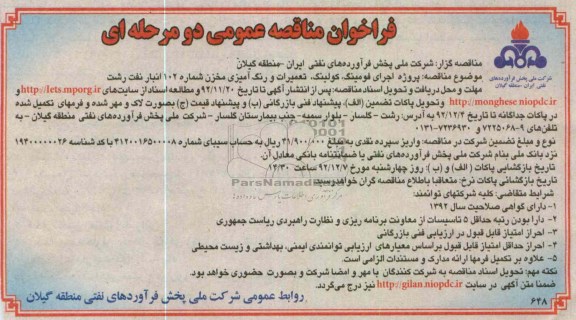 فراخوان مناقصه عمومی دو مرحله ای
شرکت ملی پخش فرآورده‌های نفتی ایران -منطقه گیلان
مناقصه گزار: شرکت ملی پخش فرآورده‌های نفتی ایران -منطقه گیلان
موضوع مناقصه: پروژه اجرای فومینگ، کولینگ، تعمیرات و رنگ آمیزی مخزن شماره ۱۰۲ انبار نفت رشت
مهلت و محل دریافت و تحویل اسناد مناقصه: پس از انتشار آگهی تا تاریخ ۹۲/۱۱/۲۰ و مطالعه اسناد از سایت‌های http://iets.mporg.ir و
http://monghese niopdc.ir و تحویل پاکات تضمین (الف)، پیشنهاد فنی بازرگانی (ب) و پیشنهاد قیمت (ج) بصورت لاک و مهر شده و فرمهای تکمیل شده
در پاکات جداگانه تا تاریخ ۹۲/۱۲/۴ به آدرس: رشت - گلسار - بلوار سمیه- جنب بیمارستان گلسار - شرکت ملی پخش فرآورده‌های نفتی منطقه گیلان - به
تلفن‌های ۹-۷۲۲۵۰۶۸ و ۷۲۳۶۹۳۰-۰۱۳۱
نوع و مبلغ تضمین شرکت در مناقصه: واریز سپرده نقدی به مبلغ ۳۱/۹۰۰/۰۰۰ ریال به حساب سیبای شماره ۲۱۷۴۲۰۰۱۶۵۰۰۰۸ با کد شناسه ۱۹۴۰۰۰۰۰۰۲۶
نزد بانک ملی بنام شرکت ملی پخش فرآورده‌های نفتی یا ضمانتنامه بانکی معادل آن.
تاریخ بازگشایی پاکات ( الف) و ( ب ): روز چهارشنبه مورخ ۹۲/۱۲/۷ ساعت ۱۴/۳۰
تاریخ بازگشایی پاکات نرخ: متعاقبا باطلاع مناقصه گران خواهد رسید
شرایط متقاضی: کلیه شرکتهای توانمند:
۱- دارای گواهی صلاحیت سال ۱۳۹۲
۲- دارا بودن رتبه حداقل ۵ تاسیسات از معاونت برنامه ریزی و نظارت راهبردی ریاست جمهوری
۳- احراز امتیاز قابل قبول در ارزیابی فنی بازرگانی
۴- احراز حداقل امتیاز قابل قبول براساس معیارهای ارزیابی توانمندی ایمنی، بهداشتی و زیست محیطی
۵- علاوه بر تکمیل فرمها ارائه مدارک و مستندات الزامی است.
نکته مهم: تحویل اسناد مناقصه به شرکت کنندگان با مهر و امضا شرکت و بصورت حضوری خواهد بود.
ضمنا متن آگهی در سایت http://gilan.niopdc.ir نیز درج می‌گردد.
روابط عمومی شرکت ملی پخش فرآورده‌های نفتی منطقه گیلان
۶۲۸